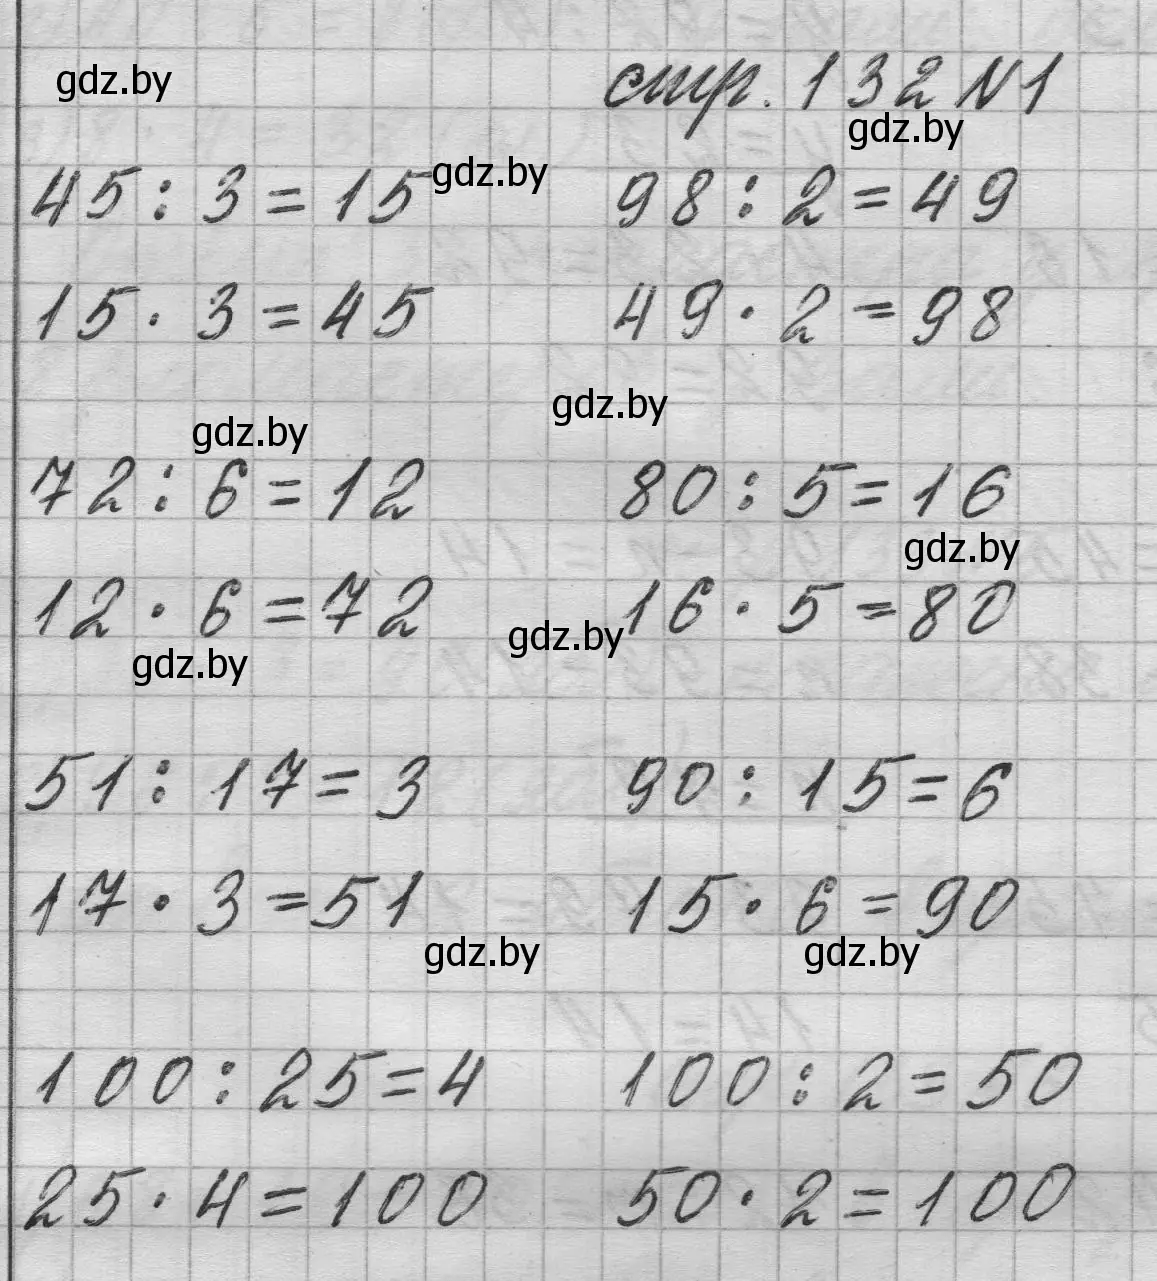 gdz.by
стр. 132 N1
gdz.by
45 : 3 = 15 gdz.by 98 : 2 = 49
15 · 3 = 45 49 · 2 = 98
gdz.by
gdz.by
72 : 6 = 12 80 : 5 = 16
gdz.by
12 · 6 = 72 16 · 5 = 80
gdz.by
gdz.by
51 : 17 = 3 90 : 15 = 6
17 · 3 = 51 15 · 6 = 90
gdz.by gdz.by
100 : 25 = 4 100 : 2 = 50
25 · 4 = 100 50 · 2 = 100